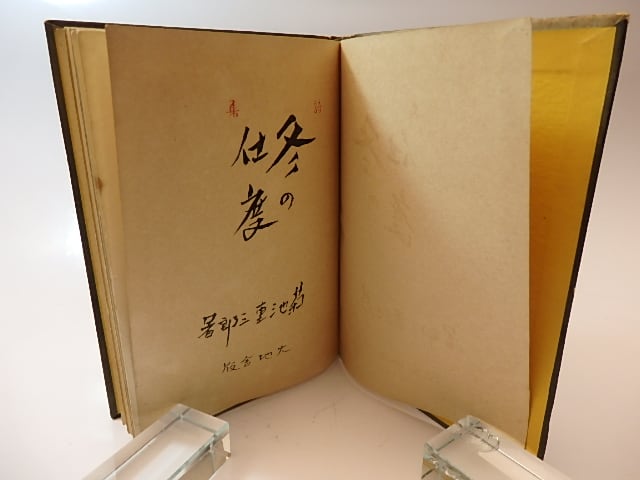 詩集
冬の
仕度
菊池重三郎著
大地舎版